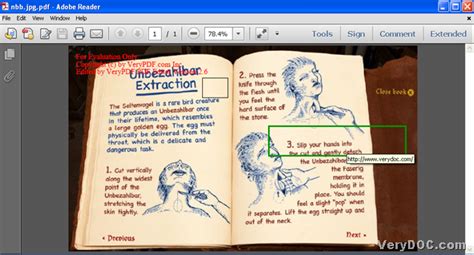 nbb.jpg.pdf - Adobe Reader
File Edit View Window Help
1 / 1 78.4% Tools Sign Comment Extended
For Evaluation Only.
Copyright (c) by VeryPDF.com Inc
Edited by VeryPDF 2.6
Unbezahlbar
Extraction
The Seltenvogel is a rare bird creature
that produces an Unbezahlbar once
in their lifetime, which resembles
a large golden egg. The egg must
physically be delivered from the
throat, which is a delicate and
dangerous task.
1. Cut vertically
along the widest
point of the
Unbezahlbar,
stretching the
skin tightly.
« Previous
2. Press the
knife through
the flesh until
you feel the
hard surface of
the stone.
3. Slip your hands into
the cut and gently detach
the Unbezahlbar
the faserig
membrane,
holding it in
place. You should
feel a slight "pop" when
it separates. Lift the egg straight up and
out of the neck.
Next »
Close book
http://www.verydoc.com/
VeryDOC.com